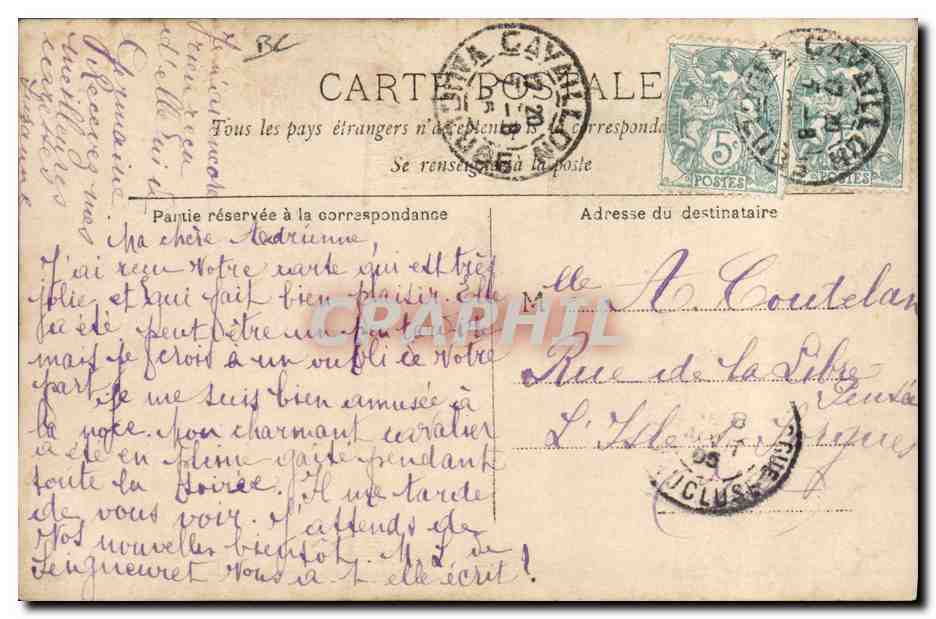 BC
CARTE POSTALE
Tous les pays étrangers n'acceptent la correspond
Se renseigner à la poste
CAVAILLON
VAUCLUSE
CAVAILLON
5c
POSTES
POSTES
Partie réservée à la correspondance
Adresse du destinataire
Ma chère Adrienne,
J'ai reçu votre carte qui est très
jolie et qui fait bien plaisir. Elle
a été peut être un
mais je crois à un oubli de votre
part. Je me suis bien amusée à
la noce. Mon charmant cavalier
a été en pleine gaité pendant
toute la soirée. Il me tarde
de vous voir. J'attends de
vos nouvelles bientôt. M. L. de
Seigneuret vous a t elle écrit !
Germaine
Recevez mes
meilleures
caresses
M lle A. Coutelan
Rue de la Libre
Pensée
L'Isle s. Sorgues
8
7
05
UCLUSE
CPAPHIL